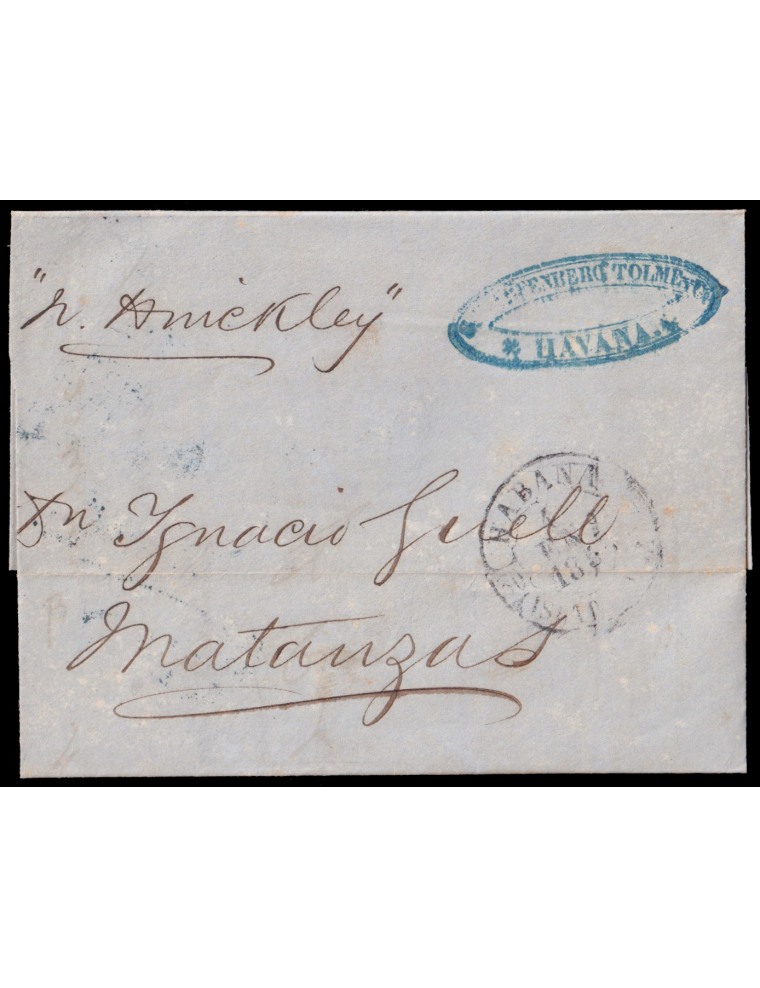 "N. Hinckley"
TOLME
HAVANA.
HABANA
Dn Ignacio Guell
Matanzas